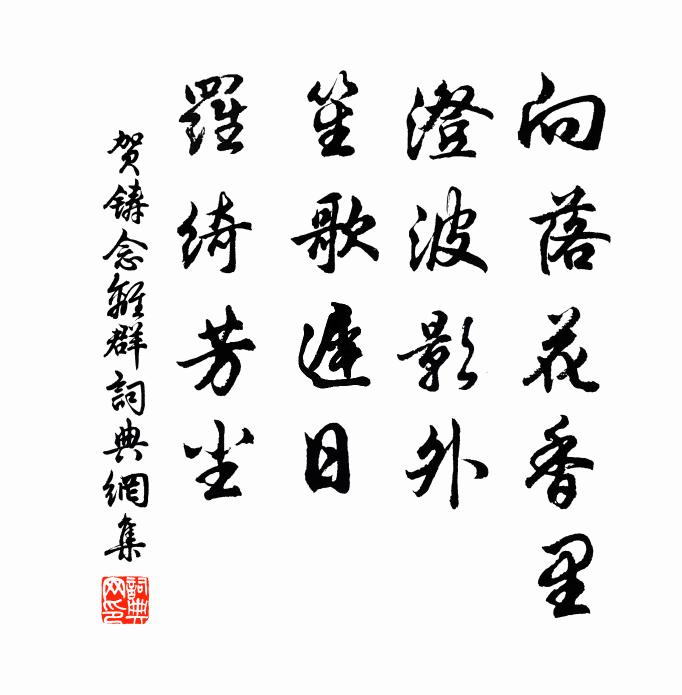 向落花香里
澄波影外
笙歌遲日
羅綺芳尘
贺鑄念離群詞典網集
詞典网印